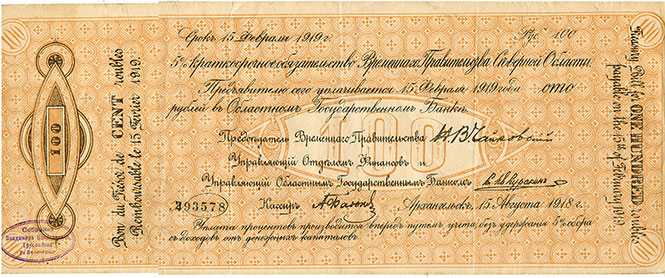 Срокъ 15 Февраля 1919 г. Руб. 100
5% краткосрочное обязательство Временнаго Правительства Сѣверной Области.
Предъявителю сего уплачивается 15 Февраля 1919 года сто
рублей въ Областномъ Государственномъ Банкѣ.
Предсѣдатель Временнаго Правительства Н. В. Чайковскій
Управляющій Отдѣломъ Финансовъ и
Управляющій Областнымъ Государственнымъ Банкомъ
493578 Кассиръ Архангельскъ, 15 Августа 1918 г.
Уплата процентовъ производится впередъ путемъ учета, безъ удержанія 5% сбора
съ доходовъ отъ денежныхъ капиталовъ.
100
Bon du Trésor de CENT roubles
Remboursable le 15 Février 1919.
Treasury Bill for ONE HUNDERED roubles
payable on the 15th of February 1919
100